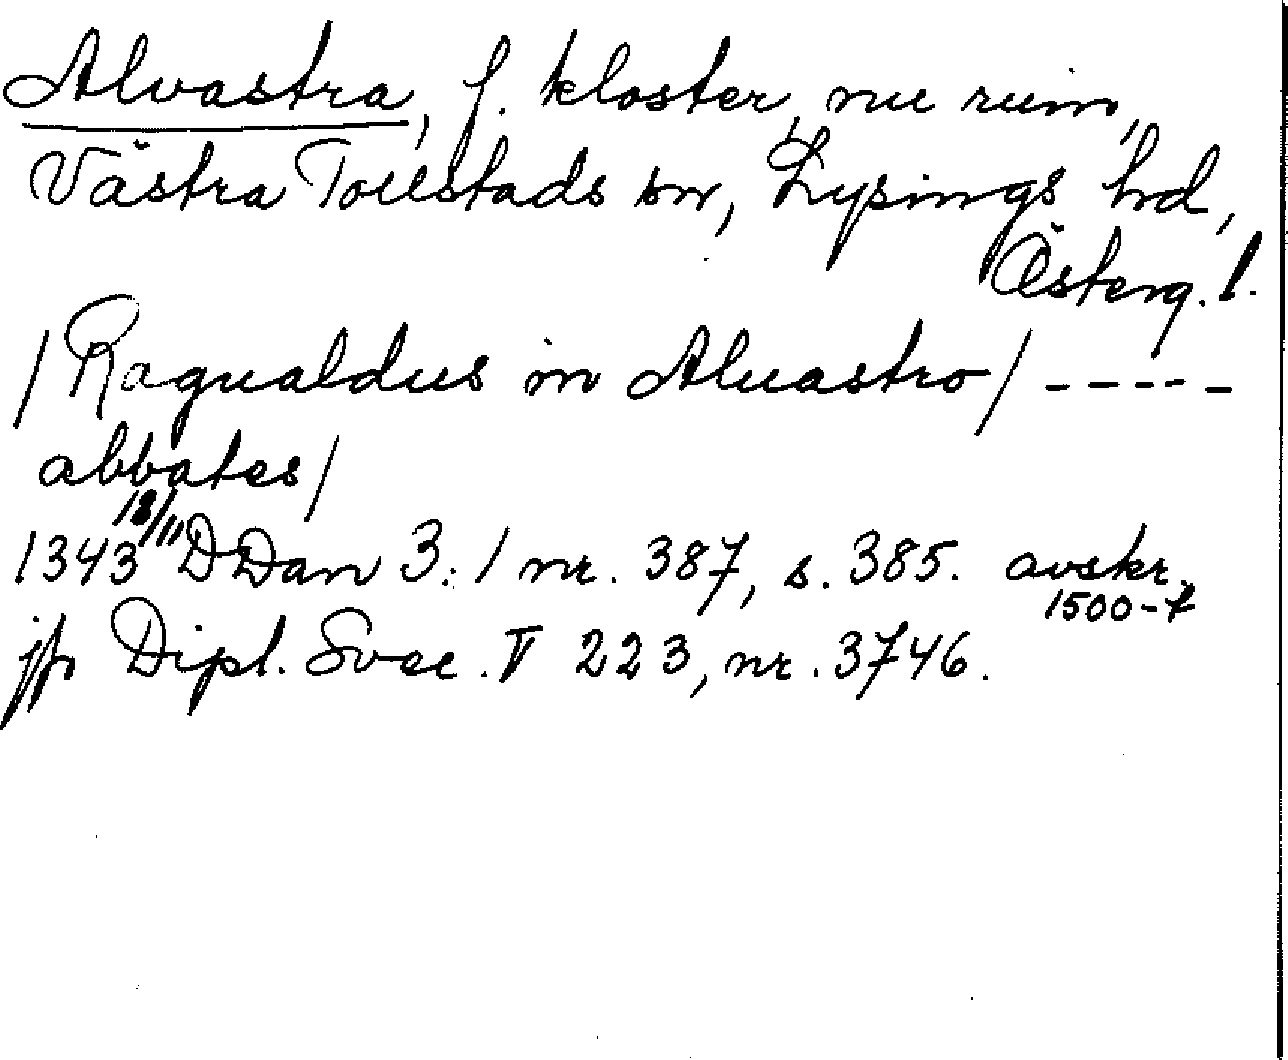 Alvastra, f. kloster, nu ruin,
Västra Tollstads sn, Lysings hd,
Österg. l.
/Ragualdus in Aluastro/ -----
abbates/
1343 18/11 DDan 3:1 nr. 387, s. 385. avskr.
1500-t
jfr Dipl. Svec. V 223, nr. 3746.